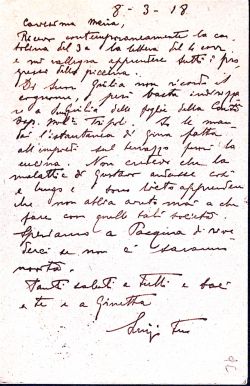 8-3-18
Carissima Maria,
Ricevo contemporaneamente la car
tolina del 3 e la lettera del 4 corr
e mi rallegro apprendere tutti i pro
gressi della piccolina.
Di Suor Giulia non ricordo il
cognome, e però basta indirizza
re a
Osp. Tripol. Io le man
dai l'istantanea di Gina fatta
all'impiedi sul terrazzo presso la
cucina. Non credevo che la
malattia di Gustavo andasse così
a lungo e sono lieto apprendere
che non abbia avuto mai a che
fare con quelle tali società.
Speriamo a Pasqua di rive
derci se non ci saranno
novità.
Tanti saluti a tutti e baci
a te e a Ginetta
Luigi tuo